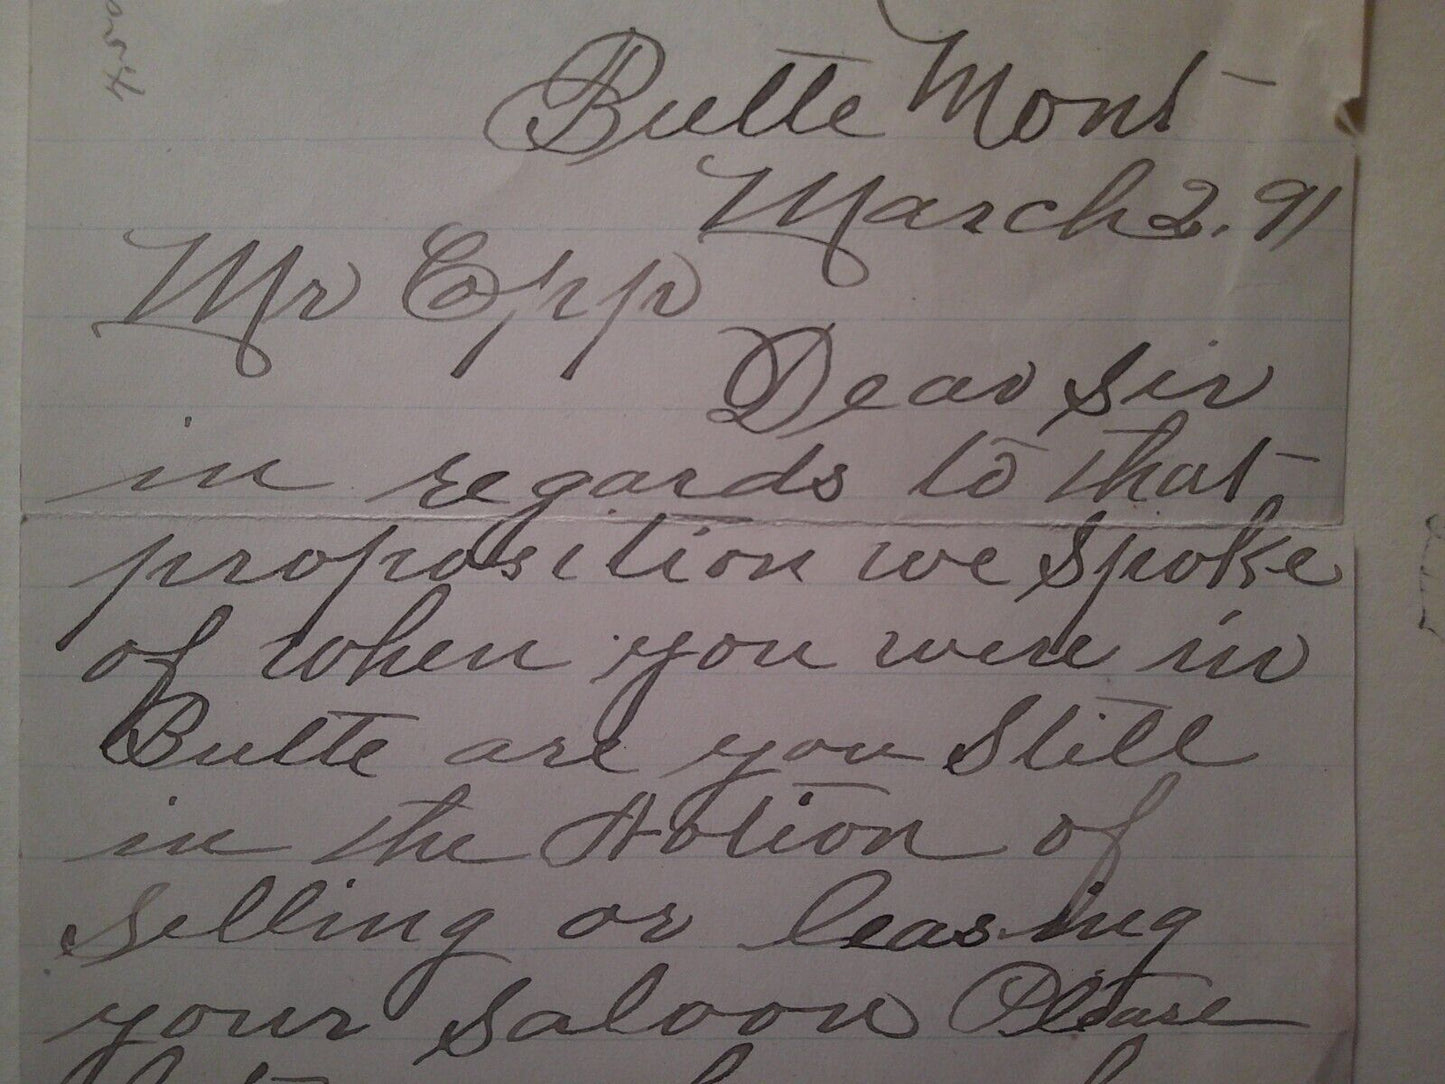 Butte Mont
March 2. 91
Mr Epp
Dear Sir
in regards to that
proposition we spoke
of when you were in
Butte are you Still
in the Notion of
Selling or leasing
your Saloon Please